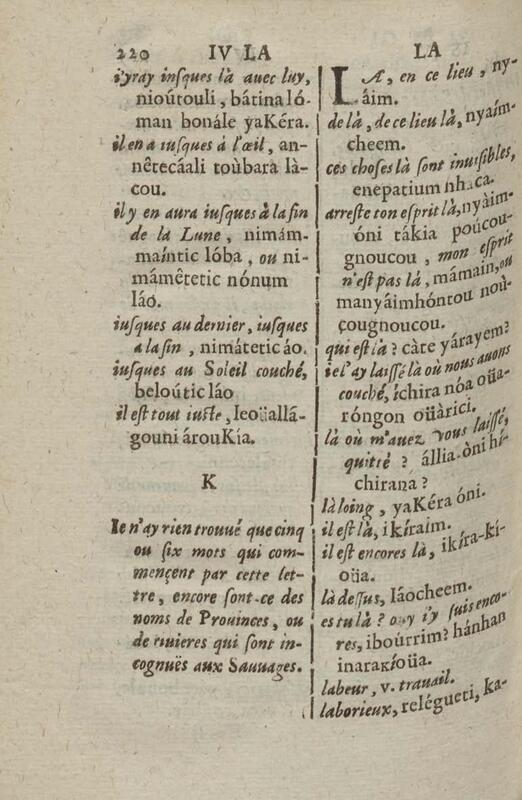 220 IV LA
i'yray insques là auec luy,
nioútouli, bátina ló-
man bonále yaKéra.
il en a iusques á l'œil, an-
nêtecáali toùbara là-
cou.
il y en aura iusques à la fin
de la Lune, nimám-
maíntic lóba, ou ni-
mámêtetic nónum
láo.
iusques au dernier, iusques
a la fin, nimátetic áo.
iusques au Soleil couché,
beloútic láo
il est tout iuste, Ieoüallá-
gouni árouKía.
K
Ie n'ay rien trouué que cinq
ou six mots qui com-
mençent par cette let-
tre, encore sont-ce des
noms de Prouinces, ou
de riuieres qui sont in-
cognuës aux Sauuages.
LA
LA, en ce lieu, ny-
áim.
de là, de ce lieu là, nyáim-
cheem.
ces choses là sont inuisibles,
enepatium nhaca.
arreste ton esprit là, nyàim-
óni tákia poúcou-
gnoucou, mon esprit
n'est pas là, mámain, ou
manyáimhóntou noú-
çougnoucou.
qui est là? càte yárayem?
ie l'ay laissé là où nous auons
couché, íchira nóa oüa-
róngon oüàrici.
là où m'auez vous laissé,
quitté? állia-òni hí-
chirana?
là loing, yaKéra óni.
il est là, ikíraim.
il est encores là, ikíra-kí-
oüa.
là dessus, Iáocheem.
es tu là? ouy i'y suis enco-
res, iboúrrim? hánhan
inarakíoüa.
labeur, v. trauail.
laborieux, relégueti, ka-